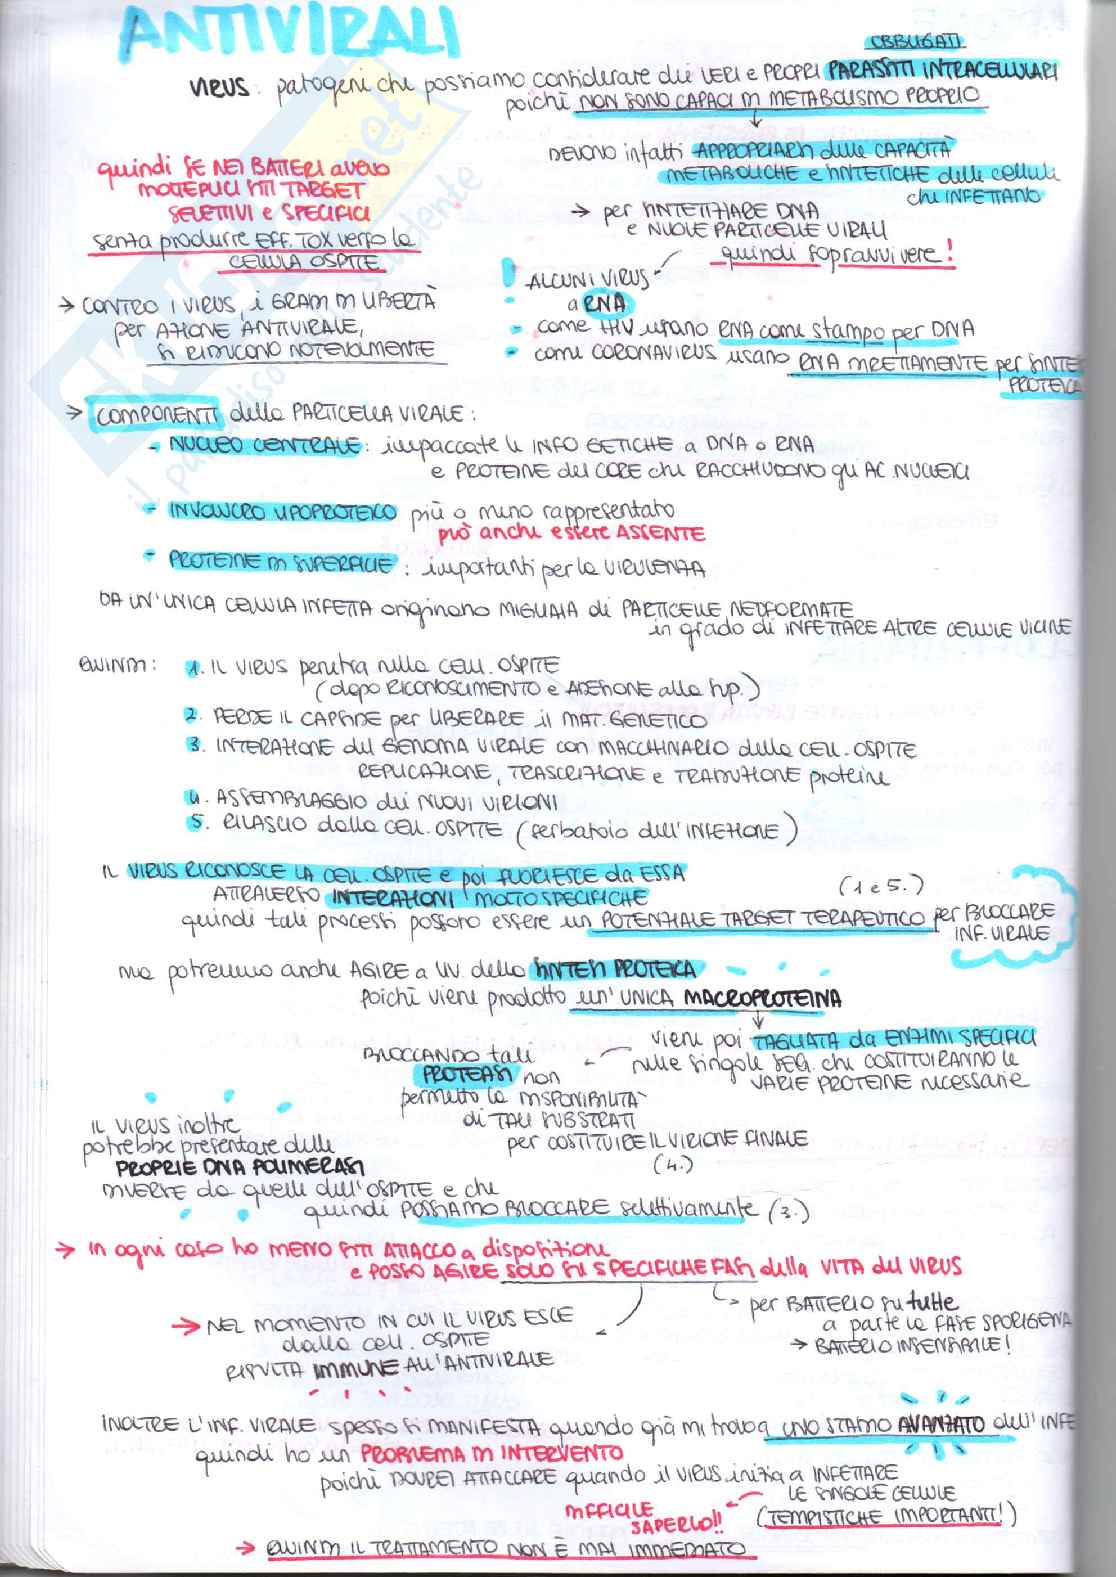 ANTIVIRALI
OBBLIGATI
VIRUS: patogeni che possiamo considerare dei VERI e PROPRI PARASSITI INTRACELLULARI
poichè NON SONO CAPACI DI METABOLISMO PROPRIO
DEVONO infatti APPROPRIARSI delle CAPACITÀ
METABOLICHE e SINTETICHE delle cellule
che INFETTANO
→ per SINTETIZZARE DNA
e NUOVE PARTICELLE VIRALI
quindi sopravvivere!
quindi SE NEI BATTERI avevo
MOLTEPLICI SITI TARGET
SELETTIVI e SPECIFICI
senza produrre EFF. TOX verso la
CELLULA OSPITE
→ CONTRO I VIRUS, i GRADI DI LIBERTÀ
per AZIONE ANTIVIRALE,
SI RIDUCONO NOTEVOLMENTE
! ALCUNI VIRUS
a RNA
- come HIV usano RNA come stampo per DNA
- come CORONAVIRUS usano RNA DIRETTAMENTE per SINTESI
PROTEICA
→ COMPONENTI della PARTICELLA VIRALE:
- NUCLEO CENTRALE: impaccate le INFO GETICHE a DNA o RNA
e PROTEINE del CORE che RACCHIUDONO gli AC. NUCLEICI
- INVOLUCRO LIPOPROTEICO più o meno rappresentato
può anche essere ASSENTE
- PROTEINE DI SUPERFICIE: importanti per la VIRULENZA
DA UN'UNICA CELLULA INFETTA originano MIGLIAIA di PARTICELLE NEOFORMATE
in grado di INFETTARE ALTRE CELLULE VICINE
QUINDI: 1. IL VIRUS penetra nella CELL. OSPITE
(dopo RICONOSCIMENTO e ADESIONE alla sup.)
2. PERDE IL CAPSIDE per LIBERARE il MAT. GENETICO
3. INTERAZIONE del GENOMA VIRALE con MACCHINARIO della CELL. OSPITE
REPLICAZIONE, TRASCRIZIONE e TRADUZIONE proteine
4. ASSEMBLAGGIO dei NUOVI VIRIONI
5. RILASCIO dalla CELL. OSPITE (serbatoio dell'INFEZIONE)
IL VIRUS RICONOSCE LA CELL. OSPITE e poi FUORIESCE da ESSA
ATTRAVERSO INTERAZIONI MOLTO SPECIFICHE (1 e 5.)
quindi tali processi possono essere un POTENZIALE TARGET TERAPEUTICO per BLOCCARE
INF. VIRALE
ma potremmo anche AGIRE a LIV. della SINTESI PROTEICA
poichè viene prodotto un'UNICA MACROPROTEINA
viene poi TAGLIATA da ENZIMI SPECIFICI
nelle singole SEQ. che COSTITUIRANNO le
VARIE PROTEINE necessarie
BLOCCANDO tali
PROTEASI non
permetto la DISPONIBILITÀ
di TALI SUBSTRATI
per COSTITUIRE IL VIRIONE FINALE
(4.)
IL VIRUS inoltre
potrebbe presentare delle
PROPRIE DNA POLIMERASI
DIVERSE da quelle dell'OSPITE e che
quindi POSSIAMO BLOCCARE selettivamente (3.)
→ In ogni caso ho MENO SITI ATTACCO a disposizione
e POSSO AGIRE SOLO SU SPECIFICHE FASI della VITA del VIRUS
per BATTERIO su tutte
a parte la FASE SPORIGENA
→ BATTERIO INSENSIBILE!
→ NEL MOMENTO IN CUI IL VIRUS ESCE
dalla cell. OSPITE
RISULTA IMMUNE ALL'ANTIVIRALE
INOLTRE L'INF. VIRALE spesso si MANIFESTA quando già mi trovo a UNO STADIO AVANZATO dell'INFE
quindi ho un PROBLEMA DI INTERVENTO
poichè DOVREI ATTACCARE quando il VIRUS inizia a INFETTARE
LE SINGOLE CELLULE
(TEMPISTICHE IMPORTANTI!)
DIFFICILE
SAPERLO!!
→ QUINDI IL TRATTAMENTO NON È MAI IMMEDIATO